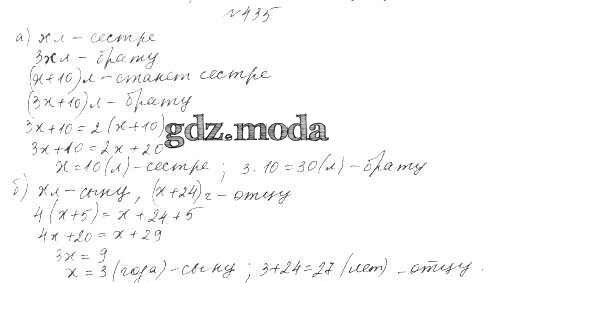 №435
а) х л – сестре
3х л – брату
(х+10) л – станет сестре
(3х+10) л – брату
3х+10 = 2(х+10)
gdz.moda
3х+10 = 2х+20
х = 10 (л) – сестре ; 3·10 = 30 (л) – брату
б) х л – сыну, (х+24) г – отцу
4(х+5) = х+24+5
4х+20 = х+29
3х = 9
х = 3 (года) – сыну ; 3+24 = 27 (лет) – отцу.